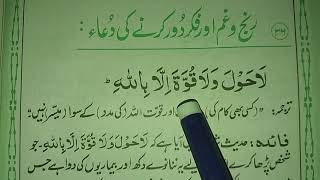 ۳۷
رنج و غم اور فکر دُور کرنے کی دُعاء :
لَاحَوْلَ وَلَا قُوَّةَ اِلَّا بِاللّٰهِ ؕ
ترجمہ: "(کسی بھی کام کی) اور قوت اللہ (کی مدد) کے سوا میسر نہیں"
فائدہ : حدیث میں آیا ہے کہ لَاحَوْلَ وَلَا قُوَّةَ اِلَّا بِاللّٰهِ۔ جو
شخص پڑھا کرے یہ ننانوے دکھ اور بیماریوں کی دوا ہے جس